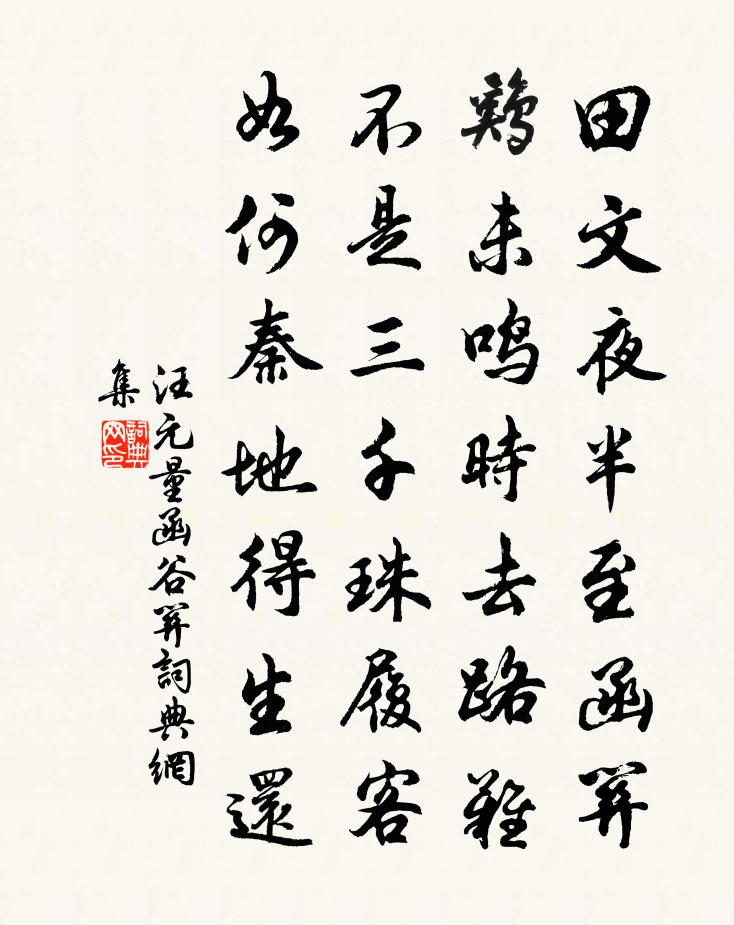 田文夜半至函関
鷄未鳴時去路難
不是三千珠履客
如何秦地得生還
汪元量函谷関詞典網
集
詞典
网印